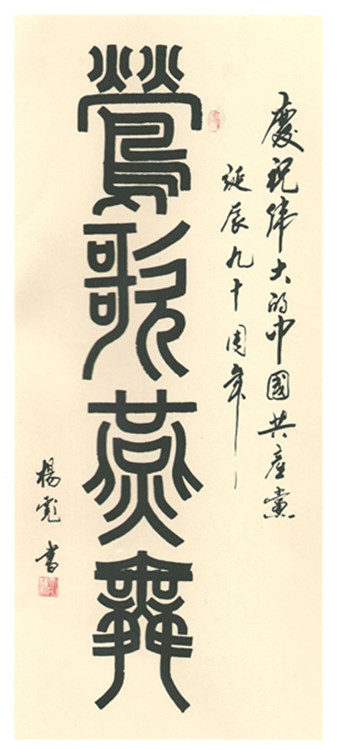 慶祝伟大的中國共產黨
延辰九十周年
鶯歌燕舞
楊彪书